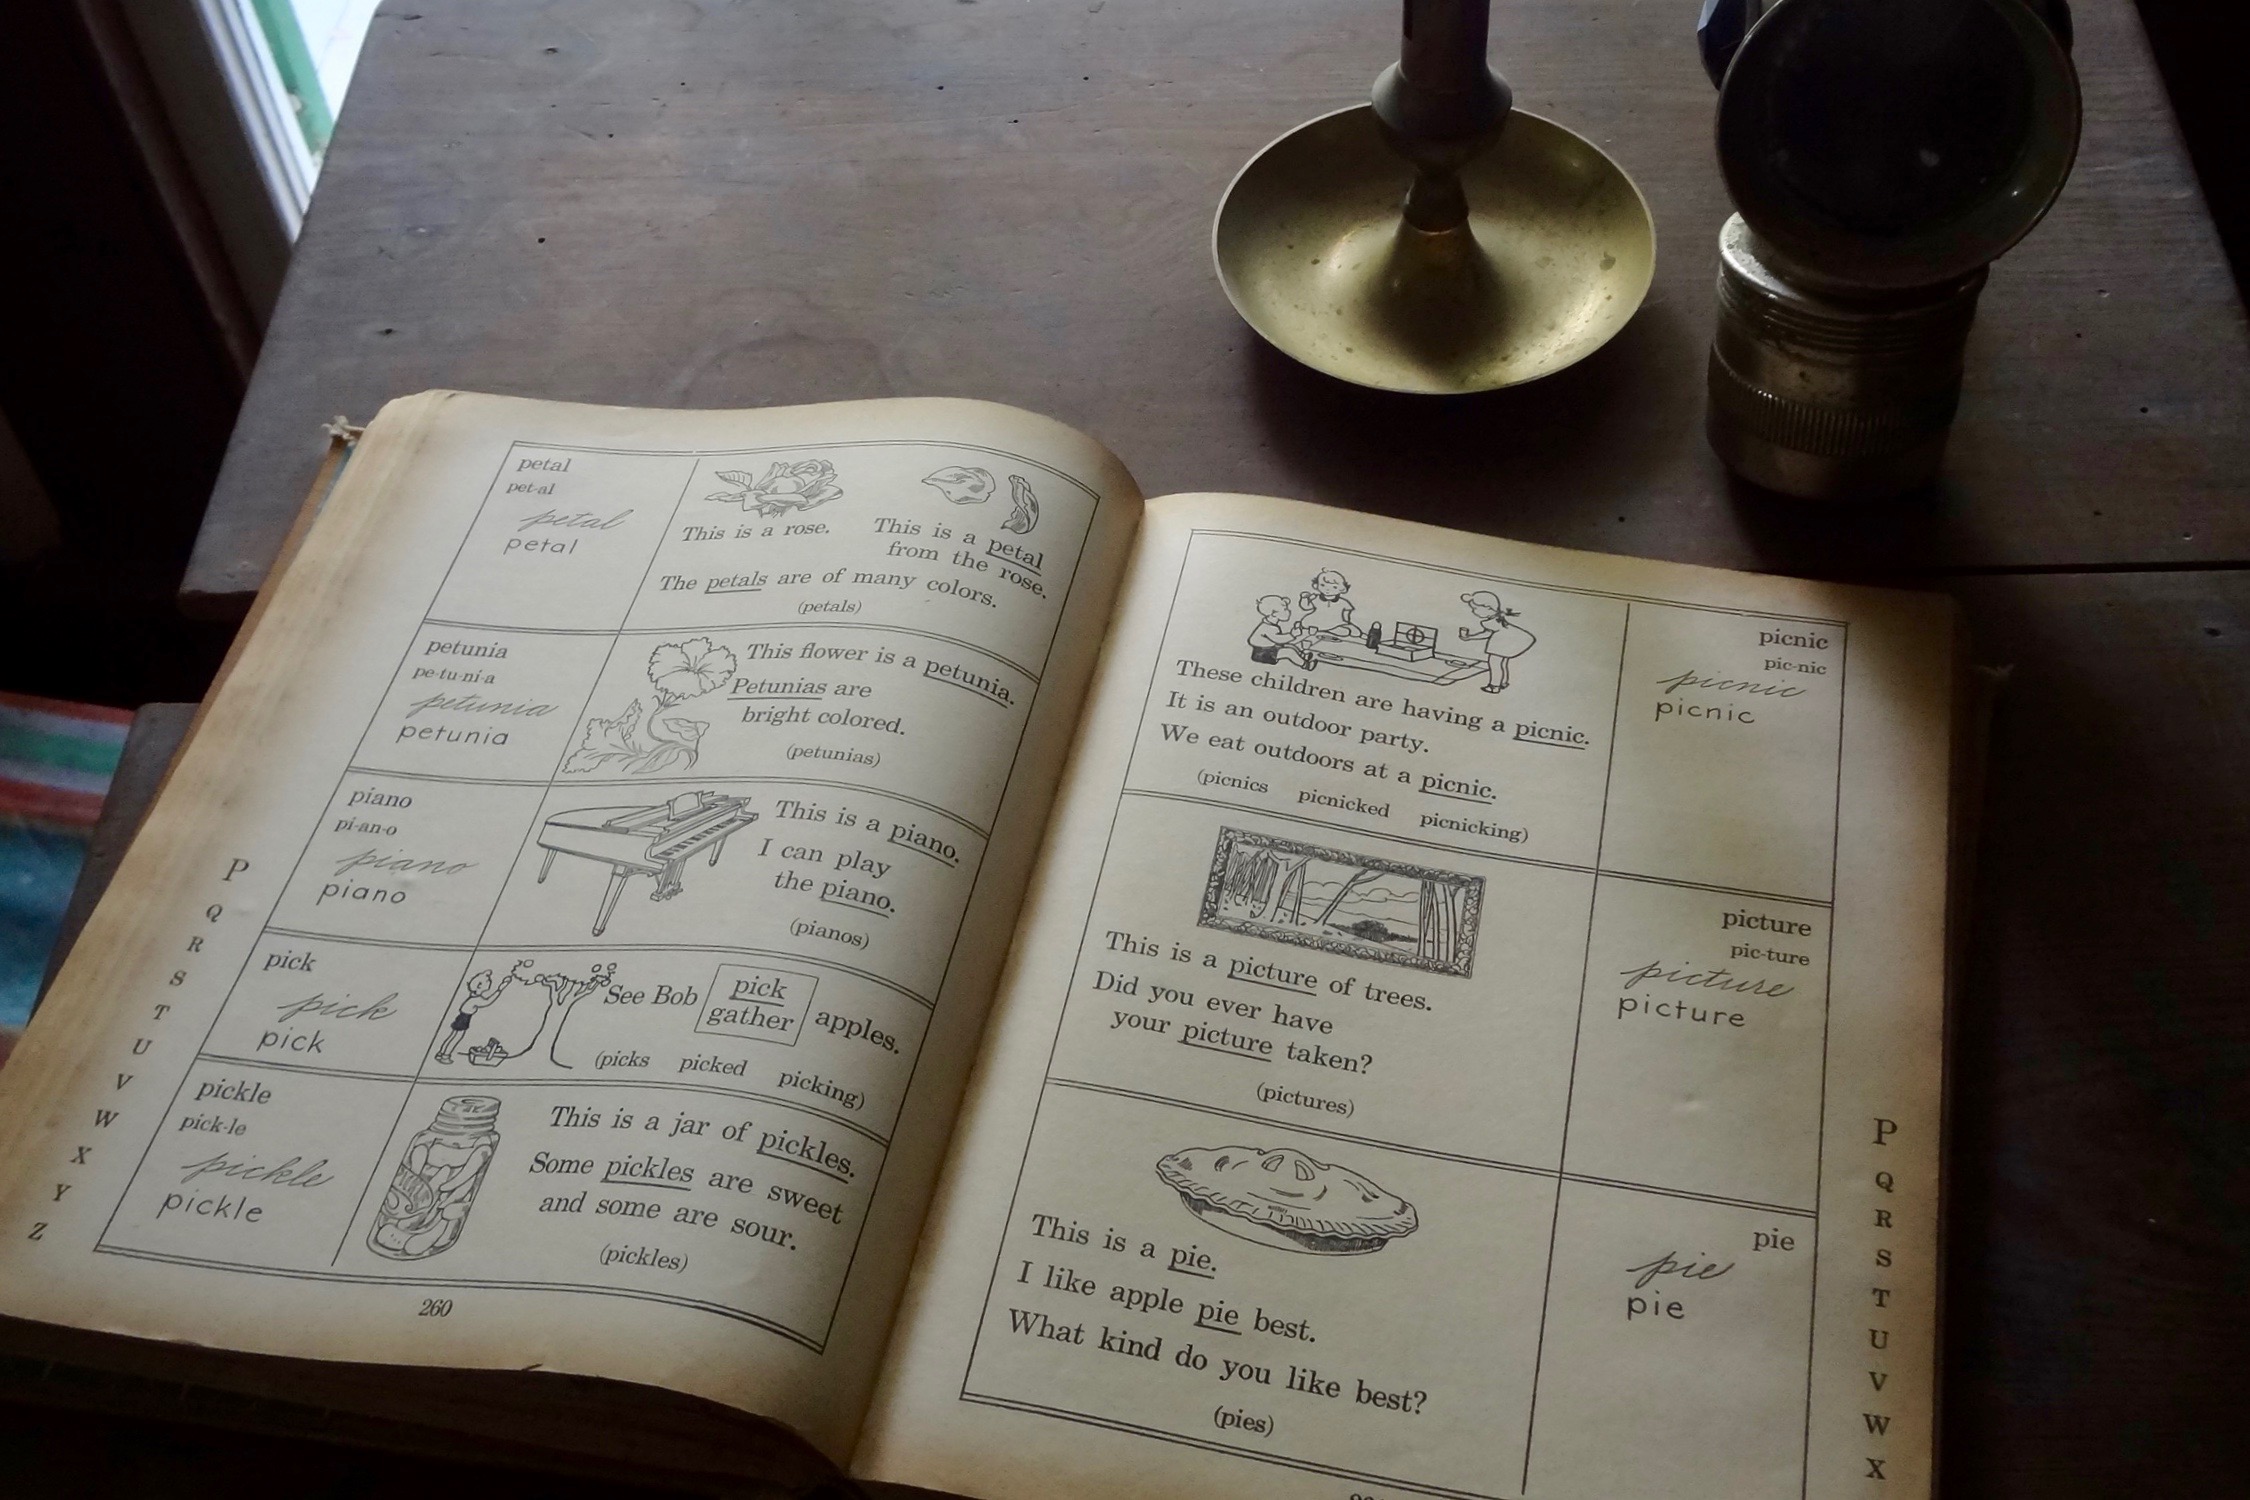 petal
pet-al
petal
petal
This is a rose.
This is a petal
from the rose.
The petals are of many colors.
(petals)
petunia
pe-tu-ni-a
petunia
petunia
This flower is a petunia.
Petunias are
bright colored.
(petunias)
piano
pi-an-o
piano
piano
This is a piano.
I can play
the piano.
(pianos)
pick
pick
pick
See Bob pick apples.
gather
(picks picked picking)
pickle
pick-le
pickle
pickle
This is a jar of pickles.
Some pickles are sweet
and some are sour.
(pickles)
P
Q
R
S
T
U
V
W
X
Y
Z
260
These children are having a picnic.
It is an outdoor party.
We eat outdoors at a picnic.
(picnics picnicked picnicking)
picnic
pic-nic
picnic
picnic
This is a picture of trees.
Did you ever have
your picture taken?
(pictures)
picture
pic-ture
picture
picture
This is a pie.
I like apple pie best.
What kind do you like best?
(pies)
pie
pie
pie
P
Q
R
S
T
U
V
W
X